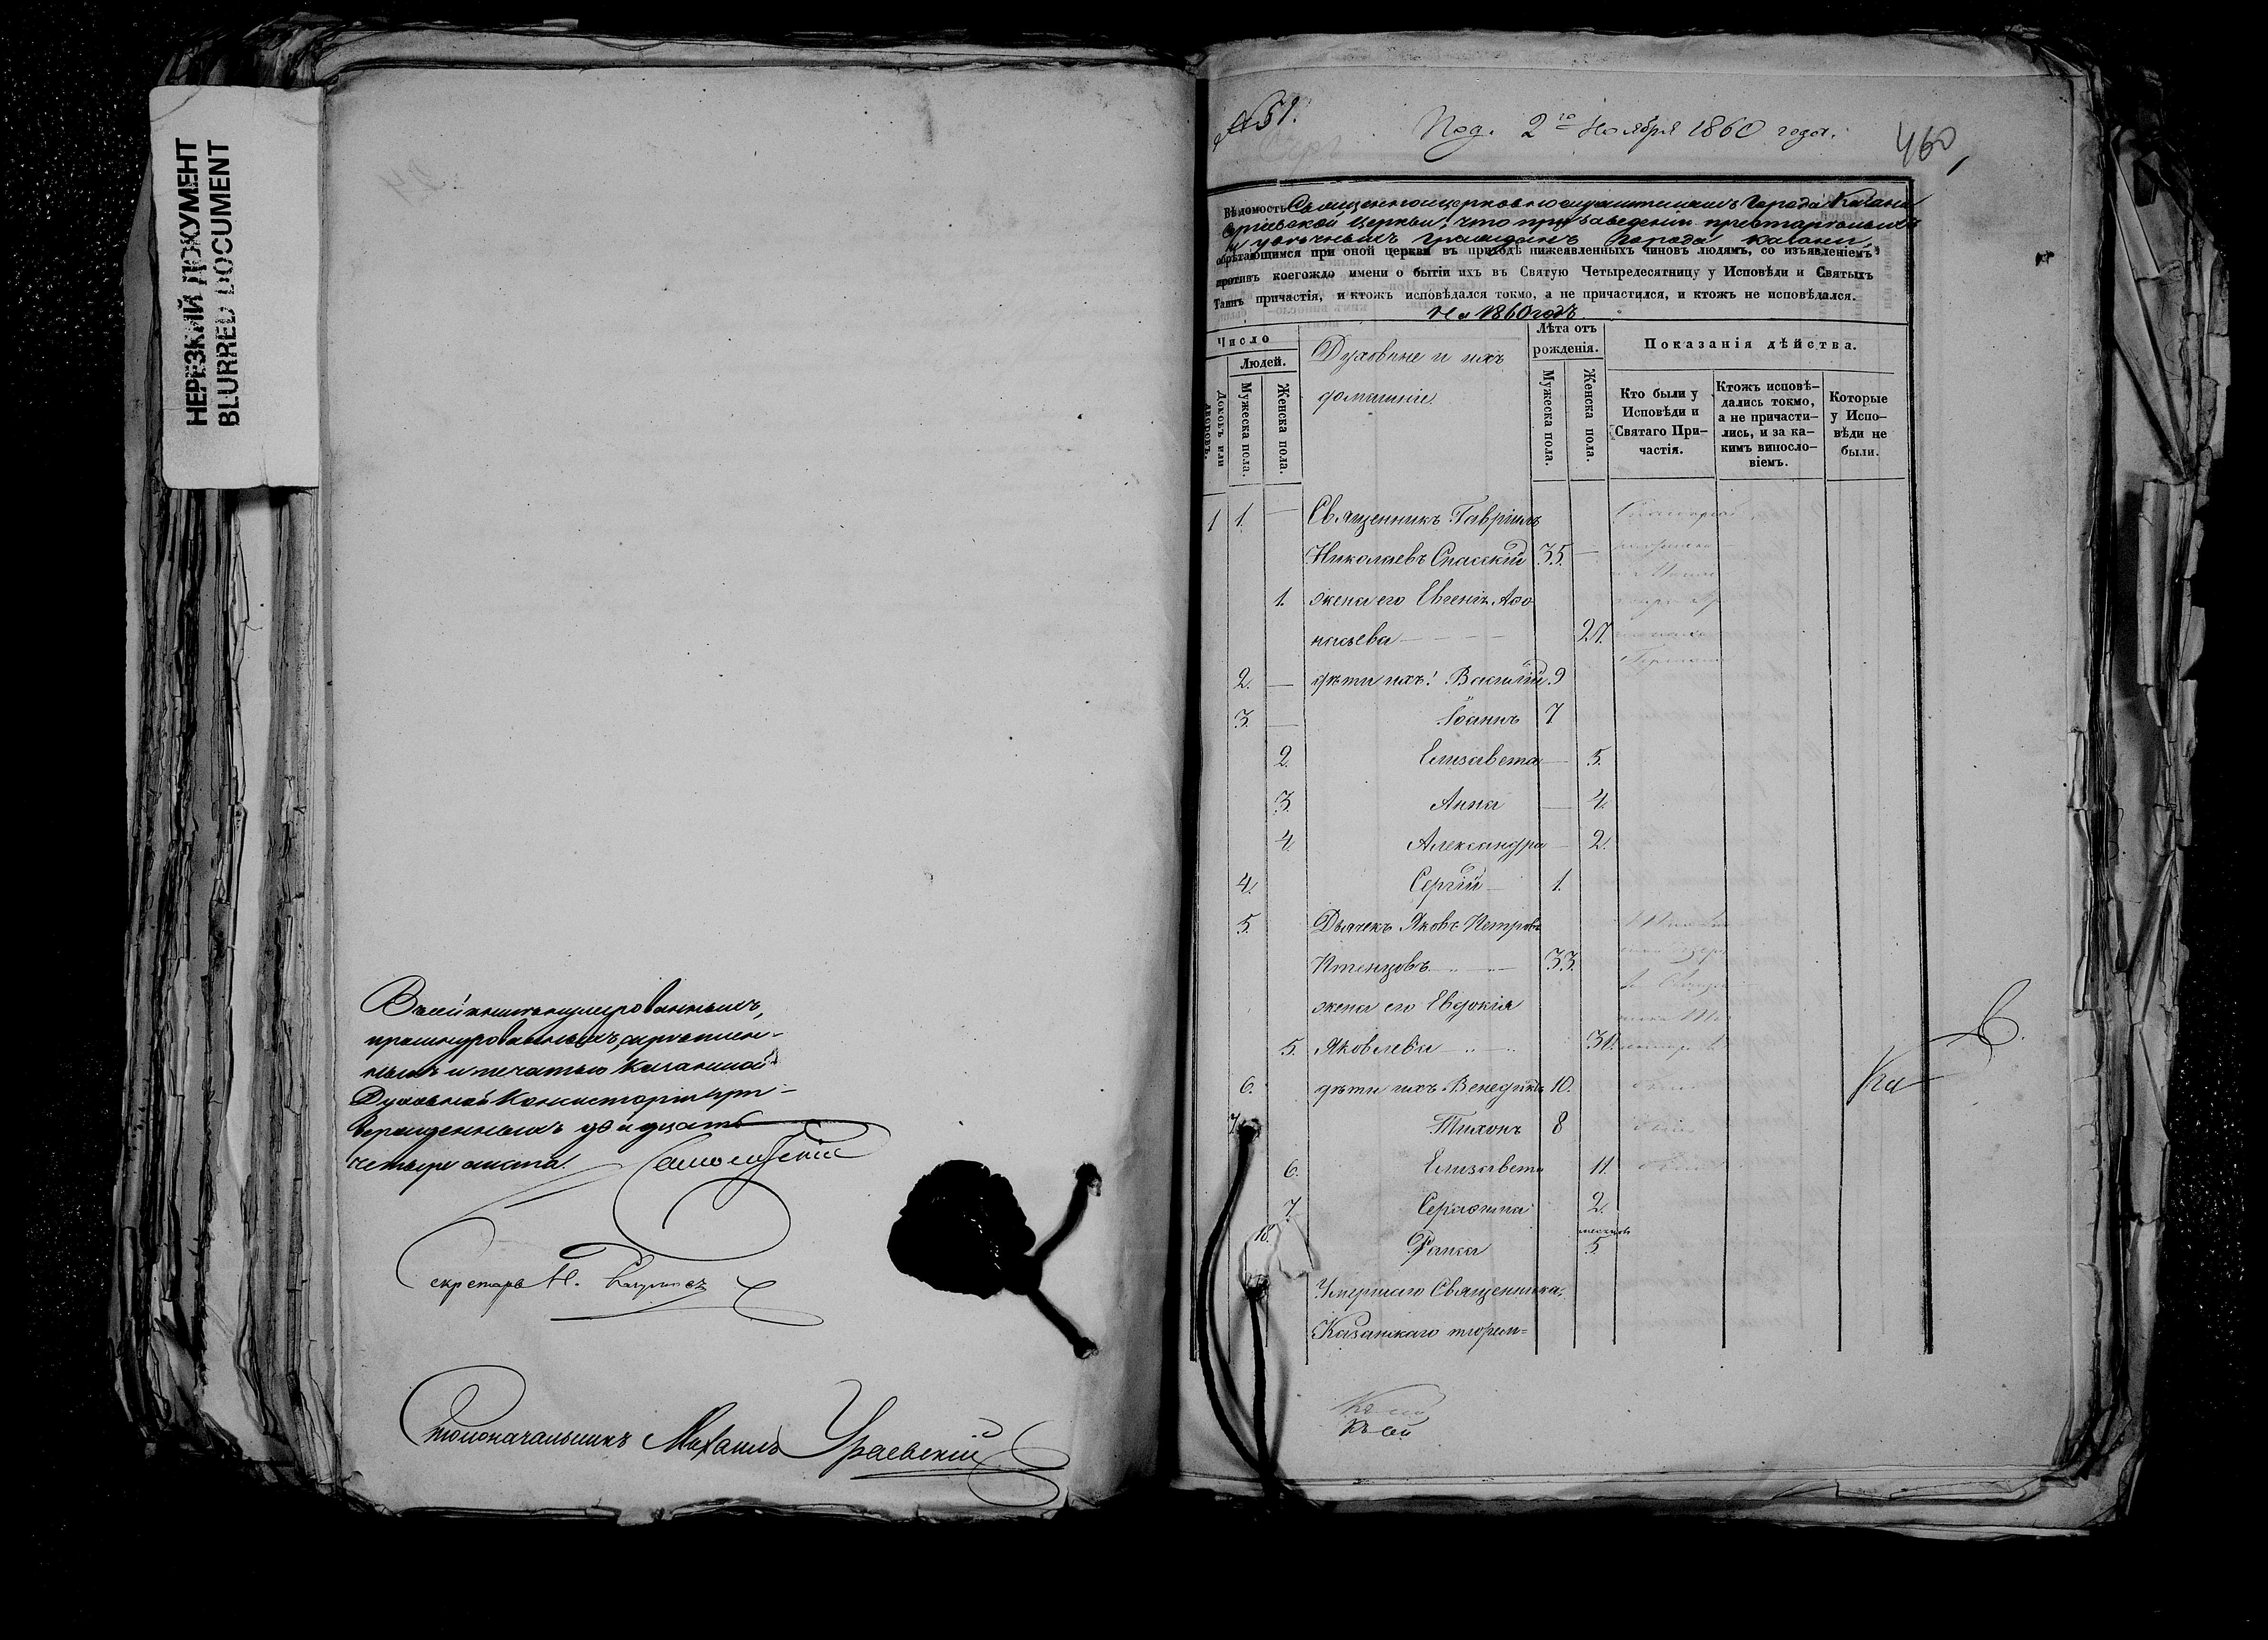 НЕРЕЗКИЙ ДОКУМЕНТ
BLURRED DOCUMENT
Въ сей книгѣ нумерованныхъ,
прошнурованныхъ, скрѣплен-
ныхъ и печатью Казанской
Духовной Консисторіи утв-
вержденныхъ двадцать
четыре листа.
Секретарь Н.
Столоначальникъ Михаилъ Ураевскій
№ 51.
Под. 2го Ноября 1860 года.
460
Вѣдомость Священноцерковнослужителямъ Города Казани
церкви, что при заведеніи престарѣлыхъ
и увѣчныхъ гражданъ города Казани,
обрѣтающимся при оной церкви въ приходѣ нижеявленныхъ чиновъ людямъ, со изъявленіемъ
противъ коегождо имени о бытіи ихъ въ Святую Четыредесятницу у Исповѣди и Святыхъ
Таинъ причастія, и ктожъ исповѣдался токмо, а не причастился, и ктожъ не исповѣдался.
На 1860 годъ.
Число
Людей.
Домовъ или дворовъ.
Мужеска пола.
Женска пола.
Духовные и ихъ
домашніе.
Лѣта отъ
рожденія.
Мужеска пола.
Женска пола.
Показанія дѣйства.
Кто были у
Исповѣди и
Святаго При-
частія.
Ктожъ исповѣ-
дались токмо,
а не причасти-
лись, и за ка-
кимъ виносло-
віемъ.
Которые
у Испо-
вѣди не
были.
1 1. Священникъ Гавріилъ
Николаевъ Спасскій 35.
1. жена его Евгенія Аѳо
насьева 27.
2. дѣти ихъ: Василій 9
3. Іоаннъ 7
2. Елизавета 5.
3. Анна 4.
4. Александра 2.
4. Сергій 1.
5. Дьячекъ Яковъ Петровъ
Птенцовъ 33.
жена его Евдокія
5. Яковлева 30.
6. дѣти ихъ Венедиктъ 10.
7. Тихонъ 8
6. Елизавета 11.
7. Серафима 2.
мѣсяцовъ
8. Раиса 5
Умершаго Священника,
Казанскаго тюрем=
Къ сей
Къ сей